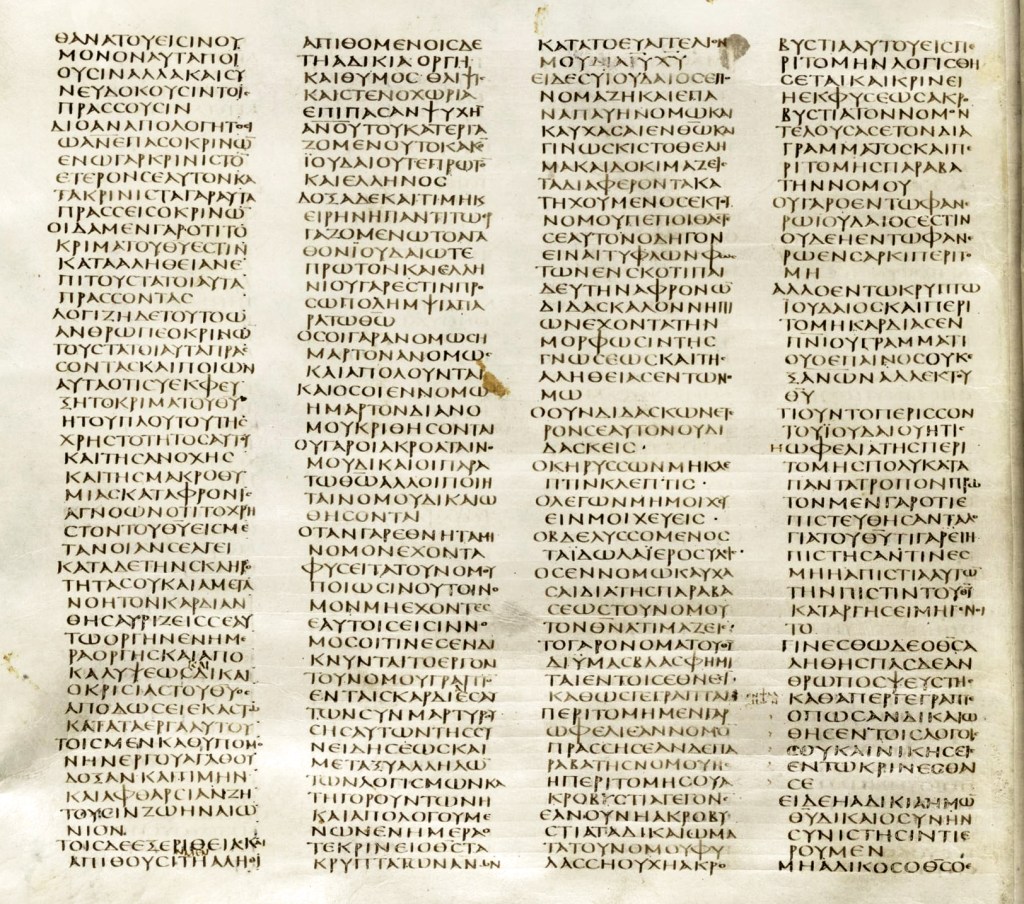 ΘΑΝΑΤΟΥΕΙΣΙΝΟΥ
ΜΟΝΟΝΑΥΤΑΠΟΙ
ΟΥΣΙΝΑΛΛΑΚΑΙΣΥ
ΝΕΥΔΟΚΟΥΣΙΝΤΟΙΣ
ΠΡΑΣΣΟΥΣΙΝ
ΔΙΟΑΝΑΠΟΛΟΓΗΤΟΣ
ΩΑΝΕΠΑΣΟΚΡΙΝΩ
ΕΝΩΓΑΡΚΡΙΝΙΣΤΟ
ΕΤΕΡΟΝΣΕΑΥΤΟΝΚΑ
ΤΑΚΡΙΝΙΣΤΑΓΑΡΑΥΤΑ
ΠΡΑΣΣΕΙΣΟΚΡΙΝΩ
ΟΙΔΑΜΕΝΓΑΡΟΤΙΤΟ
ΚΡΙΜΑΤΟΥΘΥΕΣΤΙΝ
ΚΑΤΑΑΛΗΘΕΙΑΝΕ
ΠΙΤΟΥΣΤΑΤΟΙΑΥΤΑ
ΠΡΑΣΣΟΝΤΑΣ
ΛΟΓΙΖΗΔΕΤΟΥΤΟΩ
ΑΝΘΡΩΠΕΟΚΡΙΝΩ
ΤΟΥΣΤΑΤΟΙΑΥΤΑΠΡΑΣ
ΣΟΝΤΑΣΚΑΙΠΟΙΩΝ
ΑΥΤΑΟΤΙΣΥΕΚΦΕΥ
ΞΗΤΟΚΡΙΜΑΤΟΥΘΥ
ΗΤΟΥΠΛΟΥΤΟΥΤΗΣ
ΧΡΗΣΤΟΤΗΤΟΣΑΥΤΥ
ΚΑΙΤΗΣΑΝΟΧΗΣ
ΚΑΙΤΗΣΜΑΚΡΟΘΥ
ΜΙΑΣΚΑΤΑΦΡΟΝΙΣ
ΑΓΝΟΩΝΟΤΙΤΟΧΡΗ
ΣΤΟΝΤΟΥΘΥΕΙΣΜΕ
ΤΑΝΟΙΑΝΣΕΑΓΕΙ
ΚΑΤΑΔΕΤΗΝΣΚΛΗΡΟ
ΤΗΤΑΣΟΥΚΑΙΑΜΕΤΑ
ΝΟΗΤΟΝΚΑΡΔΙΑΝ
ΘΗΣΑΥΡΙΖΕΙΣΣΕΑΥ
ΤΩΟΡΓΗΝΕΝΗΜΕ
ΡΑΟΡΓΗΣΚΑΙΑΠΟ
ΚΑΛΥΨΕΩΣΔΙΚΑΙ
ΟΚΡΙΣΙΑΣΤΟΥΘΥΟΣ
ΑΠΟΔΩΣΕΙΕΚΑΣΤΩ
ΚΑΤΑΤΑΕΡΓΑΑΥΤΟΥ
ΤΟΙΣΜΕΝΚΑΘΥΠΟΜΟ
ΝΗΝΕΡΓΟΥΑΓΑΘΟΥ
ΔΟΞΑΝΚΑΙΤΙΜΗΝ
ΚΑΙΑΦΘΑΡΣΙΑΝΖΗ
ΤΟΥΣΙΝΖΩΗΝΑΙΩ
ΝΙΟΝ
ΤΟΙΣΔΕΕΞΕΡΙΘΕΙΑΣΚΑΙ
ΑΠΙΘΟΥΣΙΤΗΑΛΗΘΙ
ΑΠΙΘΟΜΕΝΟΙΣΔΕ
ΤΗΑΔΙΚΙΑΟΡΓΗ
ΚΑΙΘΥΜΟΣΘΛΙΨΙΣ
ΚΑΙΣΤΕΝΟΧΩΡΙΑ
ΕΠΙΠΑΣΑΝΨΥΧΗ
ΑΝΟΥΤΟΥΚΑΤΕΡΓΑ
ΖΟΜΕΝΟΥΤΟΚΑΚΟ
ΪΟΥΔΑΙΟΥΤΕΠΡΩΤΟ
ΚΑΙΕΛΛΗΝΟΣ
ΔΟΞΑΔΕΚΑΙΤΙΜΗΚ
ΕΙΡΗΝΗΠΑΝΤΙΤΩΕΡ
ΓΑΖΟΜΕΝΩΤΟΑΓΑ
ΘΟΝΪΟΥΔΑΙΩΤΕ
ΠΡΩΤΟΝΚΑΙΕΛΛΗ
ΝΙΟΥΓΑΡΕΣΤΙΝΠΡΟ
ΣΩΠΟΛΗΜΨΙΑΠΑ
ΡΑΤΩΘΩ
ΟΣΟΙΓΑΡΑΝΟΜΩΣΗ
ΜΑΡΤΟΝΑΝΟΜΩΣ
ΚΑΙΑΠΟΛΟΥΝΤΑΙ
ΚΑΙΟΣΟΙΕΝΝΟΜΩ
ΗΜΑΡΤΟΝΔΙΑΝΟ
ΜΟΥΚΡΙΘΗΣΟΝΤΑΙ
ΟΥΓΑΡΟΙΑΚΡΟΑΤΑΙΝΟ
ΜΟΥΔΙΚΑΙΟΙΠΑΡΑ
ΤΩΘΩΑΛΛΟΙΠΟΙΗ
ΤΑΙΝΟΜΟΥΔΙΚΑΙΩ
ΘΗΣΟΝΤΑΙ
ΟΤΑΝΓΑΡΕΘΝΗΤΑΜΗ
ΝΟΜΟΝΕΧΟΝΤΑ
ΦΥΣΕΙΤΑΤΟΥΝΟΜΟΥ
ΠΟΙΩΣΙΝΟΥΤΟΙΝΟ
ΜΟΝΜΗΕΧΟΝΤΕΣ
ΕΑΥΤΟΙΣΕΙΣΙΝΝΟ
ΜΟΣΟΙΤΙΝΕΣΕΝΔΙ
ΚΝΥΝΤΑΙΤΟΕΡΓΟΝ
ΤΟΥΝΟΜΟΥΓΡΑΠΤΟ
ΕΝΤΑΙΣΚΑΡΔΙΑΙΣΑΥ
ΤΩΝΣΥΝΜΑΡΤΥΡΟΥ
ΣΗΣΑΥΤΩΝΤΗΣΣΥ
ΝΕΙΔΗΣΕΩΣΚΑΙ
ΜΕΤΑΞΥΑΛΛΗΛΩ
ΤΩΝΛΟΓΙΣΜΩΝΚΑ
ΤΗΓΟΡΟΥΝΤΩΝΗ
ΚΑΙΑΠΟΛΟΓΟΥΜΕ
ΝΩΝΕΝΗΜΕΡΑΟ
ΤΕΚΡΙΝΕΙΟΘΣΤΑ
ΚΡΥΠΤΑΤΩΝΑΝΩΝ
ΚΑΤΑΤΟΕΥΑΓΓΕΛΙΟΝ
ΜΟΥΔΙΑΙΥΧΥ
ΕΙΔΕΣΥΪΟΥΔΑΙΟΣΕΠΟ
ΝΟΜΑΖΗΚΑΙΕΠΑ
ΝΑΠΑΥΗΝΟΜΩΚΑΙ
ΚΑΥΧΑΣΑΙΕΝΘΩΚΑΙ
ΓΙΝΩΣΚΙΣΤΟΘΕΛΗ
ΜΑΚΑΙΔΟΚΙΜΑΖΕΙΣ
ΤΑΔΙΑΦΕΡΟΝΤΑΚΑ
ΤΗΧΟΥΜΕΝΟΣΕΚΤΟΥ
ΝΟΜΟΥΠΕΠΟΙΘΑΣ
ΣΕΑΥΤΟΝΟΔΗΓΟΝ
ΕΙΝΑΙΤΥΦΛΩΝΦΩΣ
ΤΩΝΕΝΣΚΟΤΙΠΑΙ
ΔΕΥΤΗΝΑΦΡΟΝΩ
ΔΙΔΑΣΚΑΛΟΝΝΗΠΙ
ΩΝΕΧΟΝΤΑΤΗΝ
ΜΟΡΦΩΣΙΝΤΗΣ
ΓΝΩΣΕΩΣΚΑΙΤΗΣ
ΑΛΗΘΕΙΑΣΕΝΤΩΝΟ
ΜΩ
ΟΟΥΝΔΙΔΑΣΚΩΝΕΤΕ
ΡΟΝΣΕΑΥΤΟΝΟΥΔΙ
ΔΑΣΚΕΙΣ·
ΟΚΗΡΥΣΣΩΝΜΗΚΛΕ
ΠΤΙΝΚΛΕΠΤΙΣ·
ΟΛΕΓΩΝΜΗΜΟΙΧΕΥ
ΕΙΝΜΟΙΧΕΥΕΙΣ·
ΟΒΔΕΛΥΣΣΟΜΕΝΟΣ
ΤΑΪΔΩΛΑΪΕΡΟΣΥΛΙΣ·
ΟΣΕΝΝΟΜΩΚΑΥΧΑ
ΣΑΙΔΙΑΤΗΣΠΑΡΑΒΑ
ΣΕΩΣΤΟΥΝΟΜΟΥ
ΤΟΝΘΝΑΤΙΜΑΖΕΙΣ·
ΤΟΓΑΡΟΝΟΜΑΤΟΥΘΥ
ΔΙΫΜΑΣΒΛΑΣΦΗΜΙ
ΤΑΙΕΝΤΟΙΣΕΘΝΕΣΙ·
ΚΑΘΩΣΓΕΓΡΑΠΤΑΙ
ΠΕΡΙΤΟΜΗΜΕΝΓΑΡ
ΩΦΕΛΙΕΑΝΝΟΜΟ
ΠΡΑΣΣΗΣΕΑΝΔΕΠΑ
ΡΑΒΑΤΗΣΝΟΜΟΥΗΣ
ΗΠΕΡΙΤΟΜΗΣΟΥΑ
ΚΡΟΒΥΣΤΙΑΓΕΓΟΝΕ
ΕΑΝΟΥΝΗΑΚΡΟΒΥ
ΣΤΙΑΤΑΔΙΚΑΙΩΜΑ
ΤΑΤΟΥΝΟΜΟΥΦΥ
ΛΑΣΣΗΟΥΧΗΑΚΡΟ
ΒΥΣΤΙΑΑΥΤΟΥΕΙΣΠΕ
ΡΙΤΟΜΗΝΛΟΓΙΣΘΗ
ΣΕΤΑΙΚΑΙΚΡΙΝΕΙ
ΗΕΚΦΥΣΕΩΣΑΚΡΟ
ΒΥΣΤΙΑΤΟΝΝΟΜΟΝ
ΤΕΛΟΥΣΑΣΕΤΟΝΔΙΑ
ΓΡΑΜΜΑΤΟΣΚΑΙΠΕ
ΡΙΤΟΜΗΣΠΑΡΑΒΑ
ΤΗΝΝΟΜΟΥ
ΟΥΓΑΡΟΕΝΤΩΦΑΝΕ
ΡΩΙΟΥΔΑΙΟΣΕΣΤΙΝ
ΟΥΔΕΗΕΝΤΩΦΑΝΕ
ΡΩΕΝΣΑΡΚΙΠΕΡΙΤΟ
ΜΗ
ΑΛΛΟΕΝΤΩΚΡΥΠΤΩ
ΪΟΥΔΑΙΟΣΚΑΙΠΕΡΙ
ΤΟΜΗΚΑΡΔΙΑΣΕΝ
ΠΝΙΟΥΓΡΑΜΜΑΤΙ
ΟΥΟΕΠΑΙΝΟΣΟΥΚΕ
ΞΑΝΩΝΑΛΛΕΚΤΟΥ
ΘΥ
ΤΙΟΥΝΤΟΠΕΡΙΣΣΟΝ
ΤΟΥΪΟΥΔΑΙΟΥΗΤΙΣ
ΗΩΦΕΛΙΑΤΗΣΠΕΡΙ
ΤΟΜΗΣΠΟΛΥΚΑΤΑ
ΠΑΝΤΑΤΡΟΠΟΝΠΡΩ
ΤΟΝΜΕΝΓΑΡΟΤΙΕ
ΠΙΣΤΕΥΘΗΣΑΝΤΑΛΟ
ΓΙΑΤΟΥΘΥΤΙΓΑΡΕΙΗ
ΠΙΣΤΗΣΑΝΤΙΝΕΣ
ΜΗΗΑΠΙΣΤΙΑΑΥΤΩ
ΤΗΝΠΙΣΤΙΝΤΟΥΘΥ
ΚΑΤΑΡΓΗΣΕΙΜΗΓΕΝΟΙ
ΤΟ
ΓΙΝΕΣΘΩΔΕΟΘΣΑ
ΛΗΘΗΣΠΑΣΔΕΑΝ
ΘΡΩΠΟΣΨΕΥΣΤΗΣ
ΚΑΘΑΠΕΡΓΕΓΡΑΠΤΑΙ
ΟΠΩΣΑΝΔΙΚΑΙΩ
ΘΗΣΕΝΤΟΙΣΛΟΓΟΙΣ
ΣΟΥΚΑΙΝΙΚΗΣΕΙΣ
ΕΝΤΩΚΡΙΝΕΣΘΑΙ
ΣΕ
ΕΙΔΕΗΑΔΙΚΙΑΗΜΩ
ΘΥΔΙΚΑΙΟΣΥΝΗΝ
ΣΥΝΙΣΤΗΣΙΝΤΙΕ
ΡΟΥΜΕΝ
ΜΗΑΔΙΚΟΣΟΘΣΟΕ